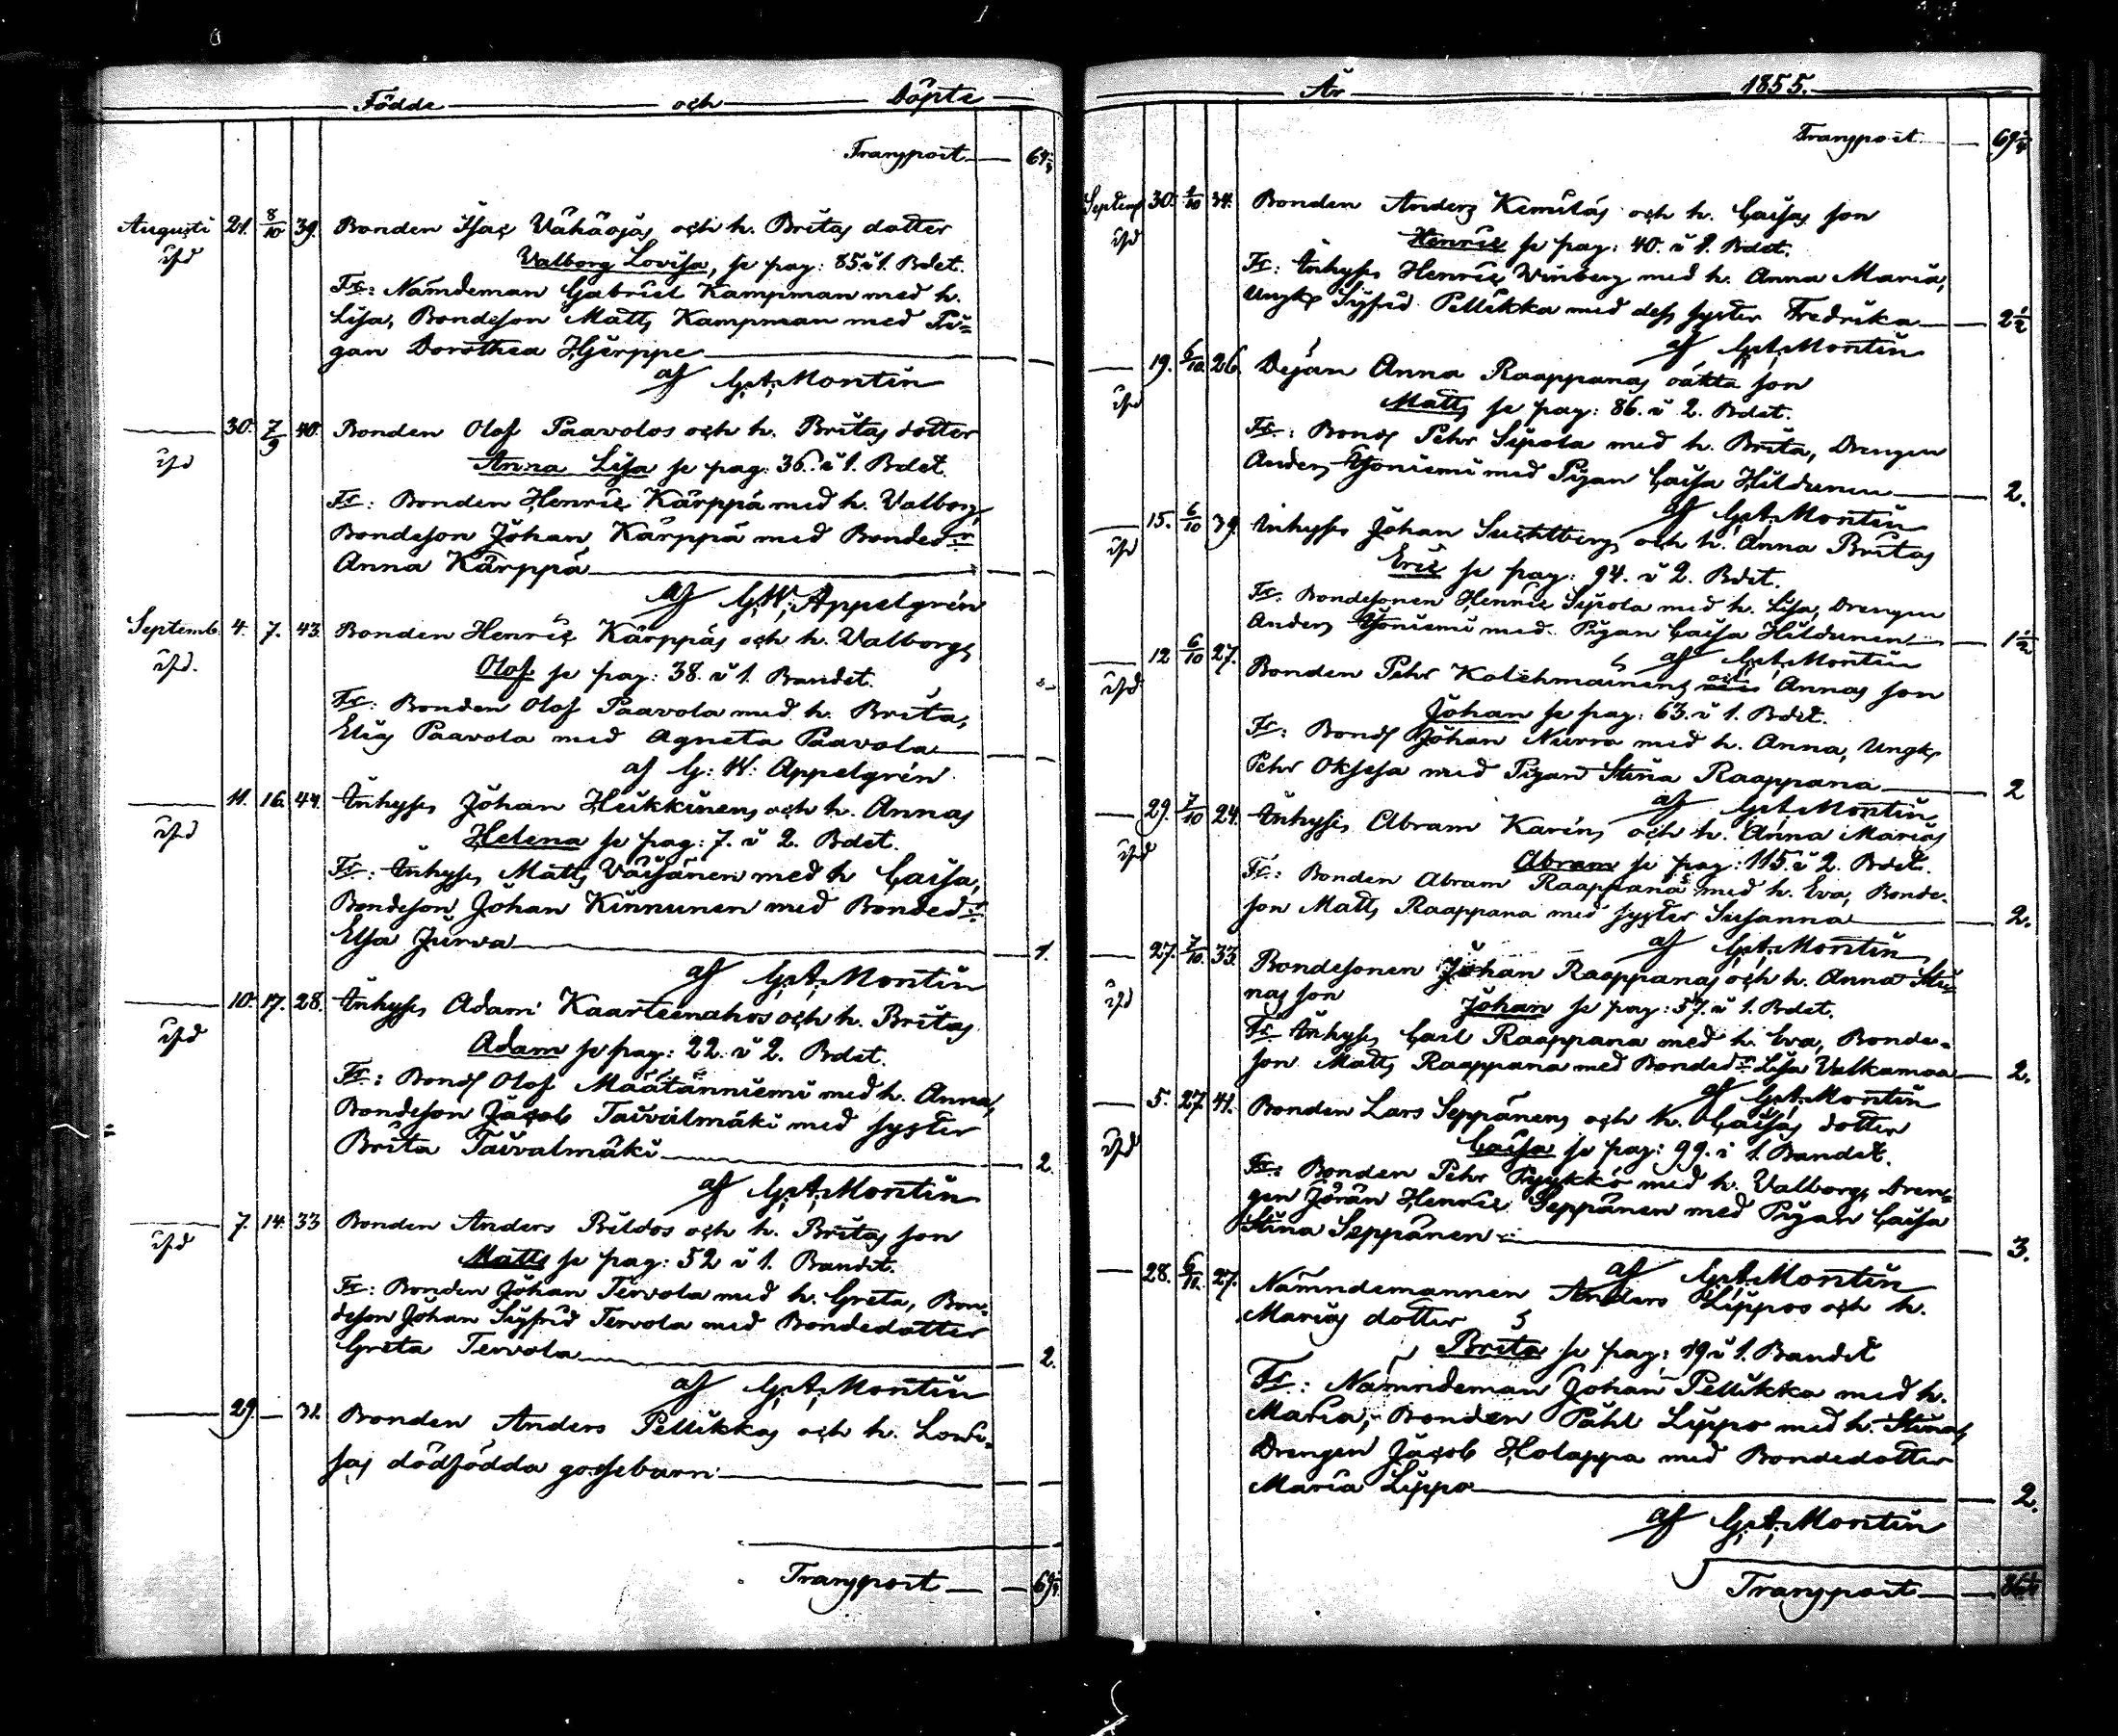 Födde och Döpte
Transport 64
Augusti 21. 8/10 39. Bonden Isac Vähäojas och h. Britas dotter
Valborg Lovisa, se pag: 85 i 1. Bdet.
Fr: Nämdeman Gabriel Kampman med h.
Lisa, Bondeson Matts Kampman med Pi-
gan Dorothea Hjerppe
af G. A. Montin
30. 7/9 40. Bonden Olof Paavolas och h. Britas dotter
Anna Lisa se pag: 36. i 1. Bdet.
Fr: Bonden Henric Kärppä med h. Valborg,
Bondeson Johan Kärppä med Bondedr
Anna Kärppä
af G. W. Appelgrén
Septemb. 4. 7. 43. Bonden Henric Kärppäs och h. Valborgs
Olof se pag: 38. i 1. Bandet.
Fr: Bonden Olof Paavola med h. Brita,
Elias Paavola med Agneta Paavola
af G: W: Appelgrén.
11. 16. 44. Inhyses Johan Heikkinens och h. Annas
Helena se pag: 7. i 2. Bdet.
Fr: Inhyses Matts Väisänen med h Caisa,
Bondeson Johan Kinnunen med Bondedr
Elsa Jurva 1.
af G. A. Montin
10. 17. 28. Inhyses Adam Kaarteenahos och h. Britas
Adam se pag: 22. i 2. Bdet.
Fr: Bond Olof Määtänniemi med h. Anna,
Bondeson Jacob Taivalmäki med syster
Brita Taivalmäki 2.
af G. A. Montin
7. 14. 33 Bonden Anders Pildos och h. Britas son
Matts se pag: 52 i 1. Bandet.
Fr: Bonden Johan Tervola med h. Greta, Bon-
deson Johan Sigfrid Tervola med Bondedotter
Greta Tervola 2.
af G. A. Montin
29. 31. Bonden Anders Pellikkas och h. Lovi-
sas dödfödda gossebarn
Transport 69
År 1855.
Transport 69
Septemb 30. 34. Bonden Anders Kemiläs och h. Caisas son
Henric se pag: 40. i 2. Bdet.
Fr: Inhyses Henric Winberg med h. Anna Maria,
Ungk Sigfrid Pellikka med dess syster Fredrika 2 1/2
af G. A. Montin
19. 6/10 26. Dejan Anna Raappanas oäkta son
Matts se pag: 86. i 2. Bdet.
Fr: Bond Pehr Sipola med h. Brita, Drengen
Anders med Pigan Caisa Hildunen 2.
af G. A. Montin
15. 6/10 39. Inhyses Johan och h. Anna Britas
Eric se pag: 94. i 2. Bdet.
Fr: Bondesonen Henric Sipola med h. Lisa, Drengen
Anders med Pigan Caisa Hildunen 1 1/2
af G. A. Montin
12 6/10 27. Bonden Pehr Kolehmainens och Annas son
Johan se pag: 63. i 1. Bdet.
Fr: Bond Johan Nurro med h. Anna, Ungk
Pehr Oksesa med Pigan Stina Raappana 2
af G. A. Montin
29. 7/10 24. Inhyses Abram Karins och h. Anna Marias
Abram se pag: 115. i 2. Bdet.
Fr: Bonden Abram Raappana med h. Eva, Bonde-
son Matts Raappana med syster Susanna 2.
af G. A. Montin
27. 7/10. 33. Bondesonen Johan Raappanas och h. Anna Sti-
nas son Johan se pag: 57. i 1. Bdet.
Fr Inhyses Carl Raappana med h. Eva, Bonde-
son Matts Raappana med Bondedr Lisa Valkamaa 2.
af G. A. Montin
5. 27. 41. Bonden Lars Seppänens och h. Caisas dotter
Caisa se pag: 99. i 1. Bandet.
Fr: Bonden Pehr Pyykkö med h. Valborg, Dren-
gen Jöran Henric Seppänen med Pigan Caisa
Stina Seppänen 3.
af G. A. Montin
28. 27. Nämndemannen Anders Lippos och h.
Marias dotter
Brita se pag: 19 i 1. Bandet
Fr: Nämndeman Johan Pellikka med h.
Maria, Bonden Påhl Lippo med h. Stina,
Drengen Jacob Holappa med Bondedotter
Maria Lippo 2.
af G. A. Montin
Transport